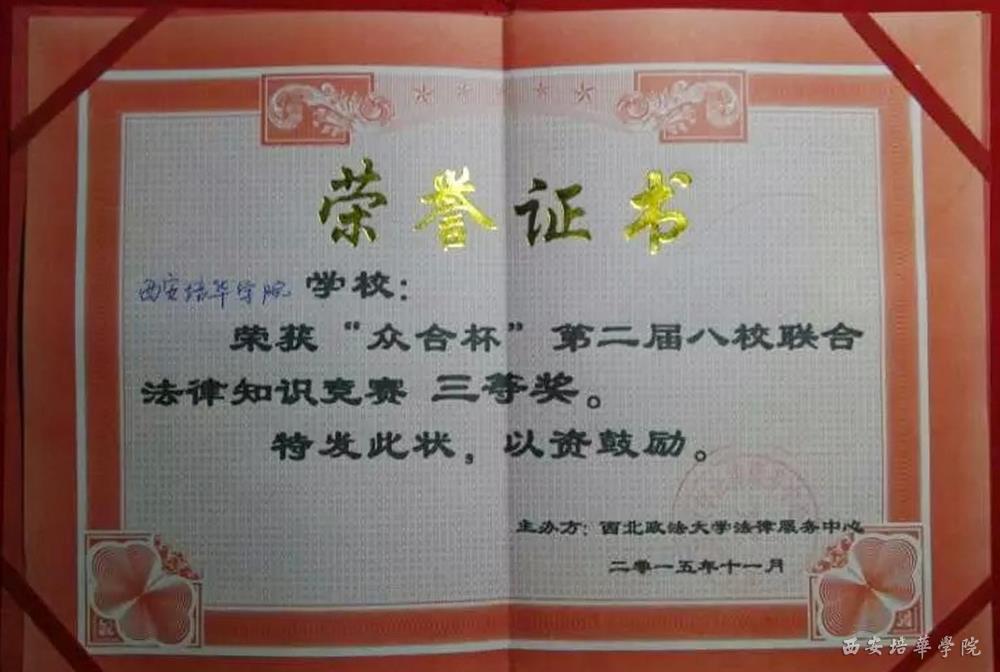 荣誉证书
西安培华学院 学校：
荣获“众合杯”第二届八校联合
法律知识竞赛 三等奖。
特发此状，以资鼓励。
主办方：西北政法大学法律服务中心
二零一五年十一月
西安培華學院